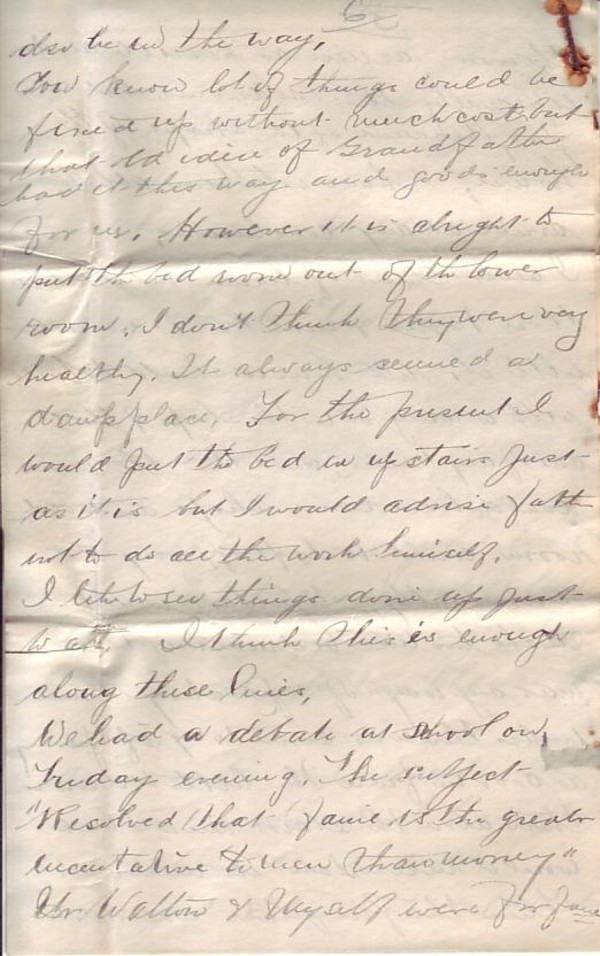 6
also be in the way.
You know lot of things could be
fixed up without much cost but
that old idea of Grandfather
had it this way and goods enough
for us. However it is alright to
put the bed room out of th lower
room. I don't think they were very
healthy. It always seemed a
damp place. For the present I
would put the bed in up stairs just
as it is but I would advise fath
not to do all the work himself.
I like to see things done up just
I think this is enough
along these lines,
We had a debate at school on
Friday evening. The subject
"Resolved that fame is the greater
incentative to men than money"
Mr. Walton & Myself were for fame